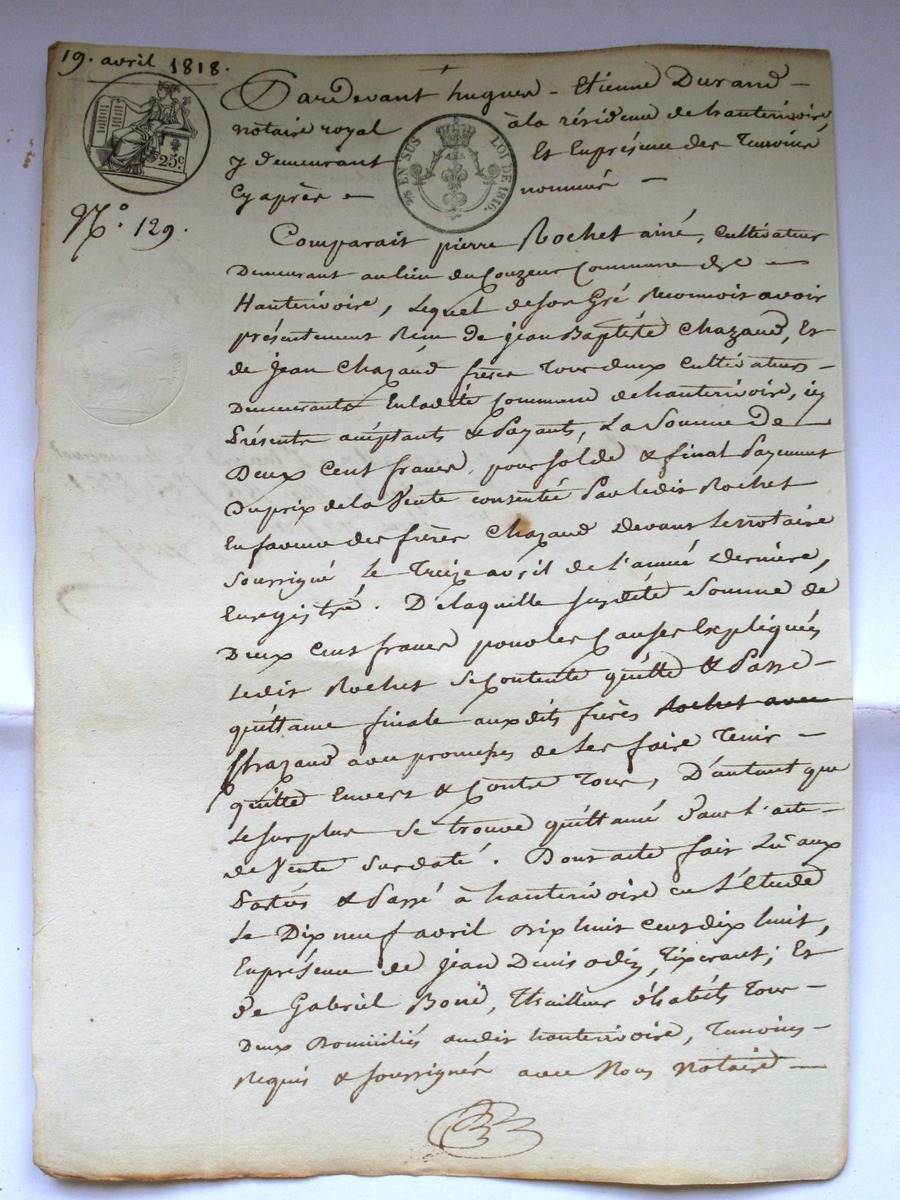 19. avril 1818.
25c
28 EN SUS LOI DE 1816.
N.° 129.
Pardevant hugues - Etienne Durand -
notaire royal à la résidence de hauterivoire
y demeurant Et En présence des Temoins
Cy après - nommés -
Comparait pierre Rochet ainé, cultivateur
Demeurant au lieu du Couzeur Commune de -
Hauterivoire, Lequel de son Gré Reconnoit avoir
présentement Reçu de jean Baptiste Chazaud, Et
de jean Chazaud frères Tous deux cultivateurs -
Demeurants En ladite Commune de hauterivoire, icy
Présents acceptants & Payants, La Somme De -
Deux Cent francs, pour solde & final Payement
Du prix de la Vente consentie Par ledit Rochet
En faveur des frères Chazaud Devant le notaire
soussigné le Treize avril de l'année Dernière,
Enregistré. De laquelle susdite Somme de
Deux Cent francs pour les Causes Expliquées
Ledit Rochet se Contente quitte & Passe -
quittance finale aux dits frères Rochet avec
Chazaud avec promesses de les faire Tenir -
quitte Envers & Contre Tous, D'autant que
Le surplus se trouve quittancé Dans l'acte -
de Vente sus daté. Dont acte fait Lu aux
Parties & Passé à hauterivoire en L'étude
Le Dix neuf avril dix huit cent dix huit,
En présence de jean Denis odin, Tixerant; Et
De Gabriel Boué, Thailleur d'habits Tous -
Deux Domiciliés audit hauterivoire, Temoins -
Requis & soussignés avec Nous Notaire -